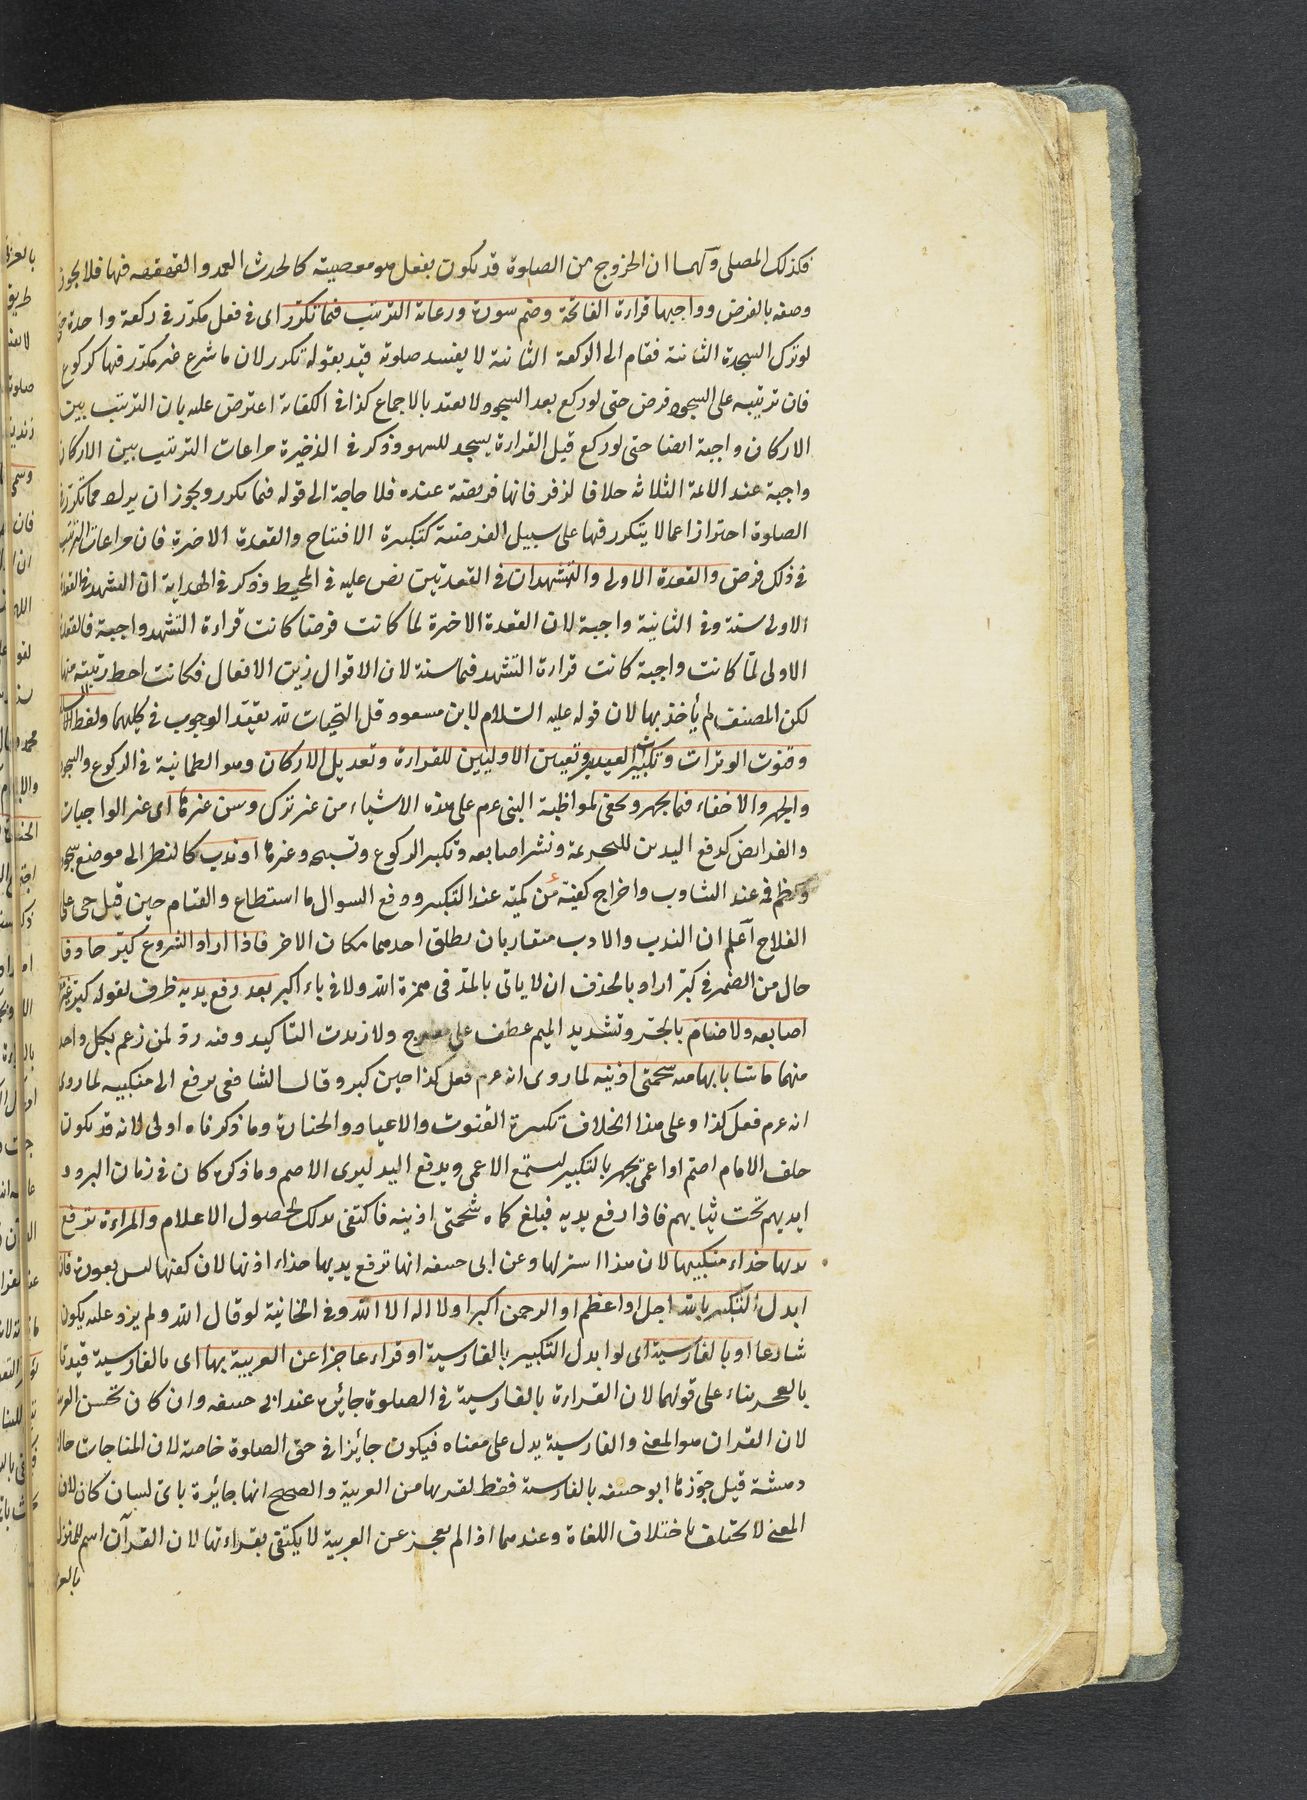 فكذلك المصلى وكما ان الخروج من الصلوة قد يكون بفعل هو معصية كالحدث العمد والقهقهه فيها فلا يجوز
وصفه بالفرض وواجبها قراءة الفاتحة وضم سورة ورعاية الترتيب فيما تكرر اى فى فعل مكرر فى ركعة واحدة حتى
لو ترك السجدة الثانية فقام الى الركعة الثانية لا يفسد صلوته قيد بقوله تكرر لان ما شرع غير مكرر فيها كركوع
فان ترتيبه على السجود فرض حتى لو ركع بعد السجود لا يعتد بالاجماع كذا فى الكفاية اعترض عليه بان الترتيب بين
الاركان واجبة ايضا حتى لو ركع قبل القراءة يسجد للسهو وذكر فى الذخيرة مراعات الترتيب بين الاركان
واجبة عند الائمة الثلاثه خلافا لزفر فانها فريضة عنده فلا حاجة الى قوله فيما تكرر ويجوز ان يراد مما تكرر فى
الصلوة احترازا عما لا يتكرر فيها على سبيل الفرضية كتكبيرة الافتتاح والقعدة الاخيرة فان مراعات الترتيب
فى ذلك فرض والقعدة الاولى والتشهدان فى القعدتين نص عليه فى المحيط وذكر فى الهداية ان التشهد فى القعدة
الاولى سنة وفى الثانية واجبة لان القعدة الاخيرة لما كانت فرضا كانت قراءة التشهد واجبة فالقعدة
الاولى لما كانت واجبة كانت قراءة التشهد فيها سنة لان الاقوال زين الافعال فكانت احط رتبة منها
لكن المصنف لم يأخذ بها لان قوله عليه السلام لابن مسعود قل التحيات لله يفيد الوجوب فى كليهما ولفظ السلام
وقنوت الوتر وتكبيرات العيدين وتعيين الاوليين للقراءة وتعديل الاركان وهو الطمانية فى الركوع والسجود
والجهر والاخفاء فيما يجهر ويخفى لمواظبة النبى عم على هذه الاشياء من غير ترك وسن غيرها اى غير الواجبات
والفرايض كرفع اليدين للتحريمة ونشر اصابعه وتكبير الركوع وتسبيحه وغيرها او ندب كالنظر الى موضع سجوده
وكظم فمه عند التثاوب واخراج كفيه من كميه عند التكبير ودفع السعال ما استطاع والقيام حين قيل حى على
الفلاح اعلم ان الندب والادب متقاربان يطلق احدهما مكان الاخر فاذا اراد الشروع كبر حاذفا
حال من الضمير فى كبر اراد بالحذف ان لا ياتى بالمد فى همزة الله ولا فى باء اكبر بعد رفع يديه ظرف لقوله كبر غير مفرج
اصابعه ولا ضام بالجر وتشديد الميم عطف على مفرج ولا زيدت التاكيد وفيه رد لمن زعم بكل واحد
منهما ماسا بابهاميه شحمتى اذنيه لما روى انه عم فعل كذا حين كبر وقال الشافعى يرفع الى منكبيه لما روى
انه عم فعل كذا وعلى هذا الخلاف تكبيرة القنوت والاعياد والجنازة وما ذكرناه اولى لانه قد يكون
خلف الامام اصم او اعمى يجهر بالتكبير ليستمع الاعمى ويرفع اليد ليرى الاصم وما ذكره كان فى زمان البرود
ايديهم تحت ثيابهم فاذا رفع يديه فبلغ كماه شحمتى اذنيه فاكتفى بذلك لحصول الاعلام والمراءة ترفع
يديها حذاء منكبيها لان هذا استر لها وعن ابى حنيفه انها ترفع يديها حذاء اذنها لان كفها ليس بعورة فان
ابدل التكبير بالله اجل او اعظم او الرحمن اكبر او لا اله الا الله وفى الخانية لو قال الله ولم يزد عليه يكون
شارعا او بالفارسية اى لو ابدل التكبير بالفارسية او قراء عاجزا عن العربية بها اى بالفارسية قيدنا
بالعجز بناء على قولهما لان القراءة بالفارسية فى الصلوة جائزة عند ابى حنيفه وان كان يحسن العربية
لان القران هو المعنى والفارسية يدل على معناه فيكون جائزا فى حق الصلوة خاصة لان المناجات حالة
دهشة قيل جوزها ابو حنيفه بالفارسية فقط لقربها من العربية والصحيح انها جائزة باى لسان كان لان
المعنى لا يختلف باختلاف اللغاة وعندهما اذا لم يعجز عن العربية لا يكتفى بقراءتها لان القرآن اسم للمنزل
بالعر